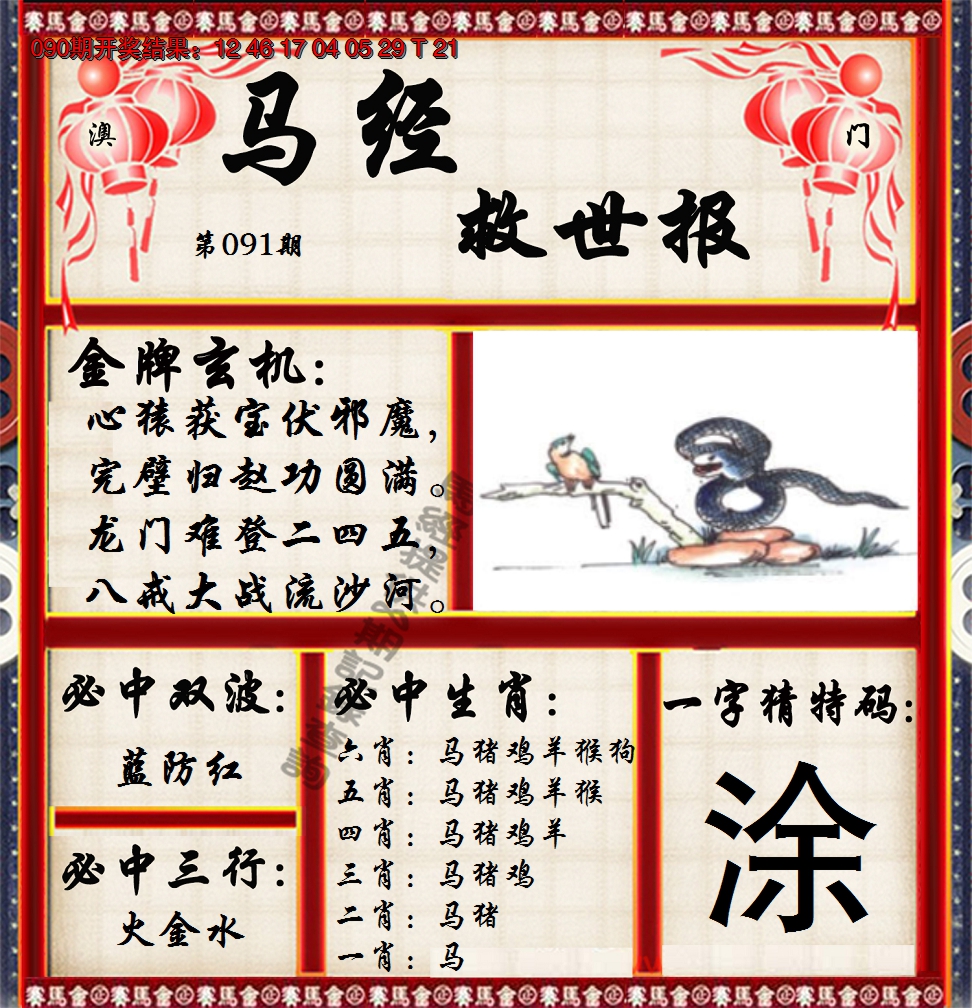 賽馬會 賽馬會 賽馬會 賽馬會 賽馬會 賽馬會 賽馬會 賽馬會 賽馬會
090期开奖结果：12 46 17 04 05 29 T 21
澳
门
马经
救世报
第091期
金牌玄机：
心猿获宝伏邪魔，
完璧归赵功圆满。
龙门难登二四五，
八戒大战流沙河。
必中双波：
蓝防红
必中三行：
火金水
必中生肖：
六肖：马猪鸡羊猴狗
五肖：马猪鸡羊猴
四肖：马猪鸡羊
三肖：马猪鸡
二肖：马猪
一肖：马
一字猜特码：
涂